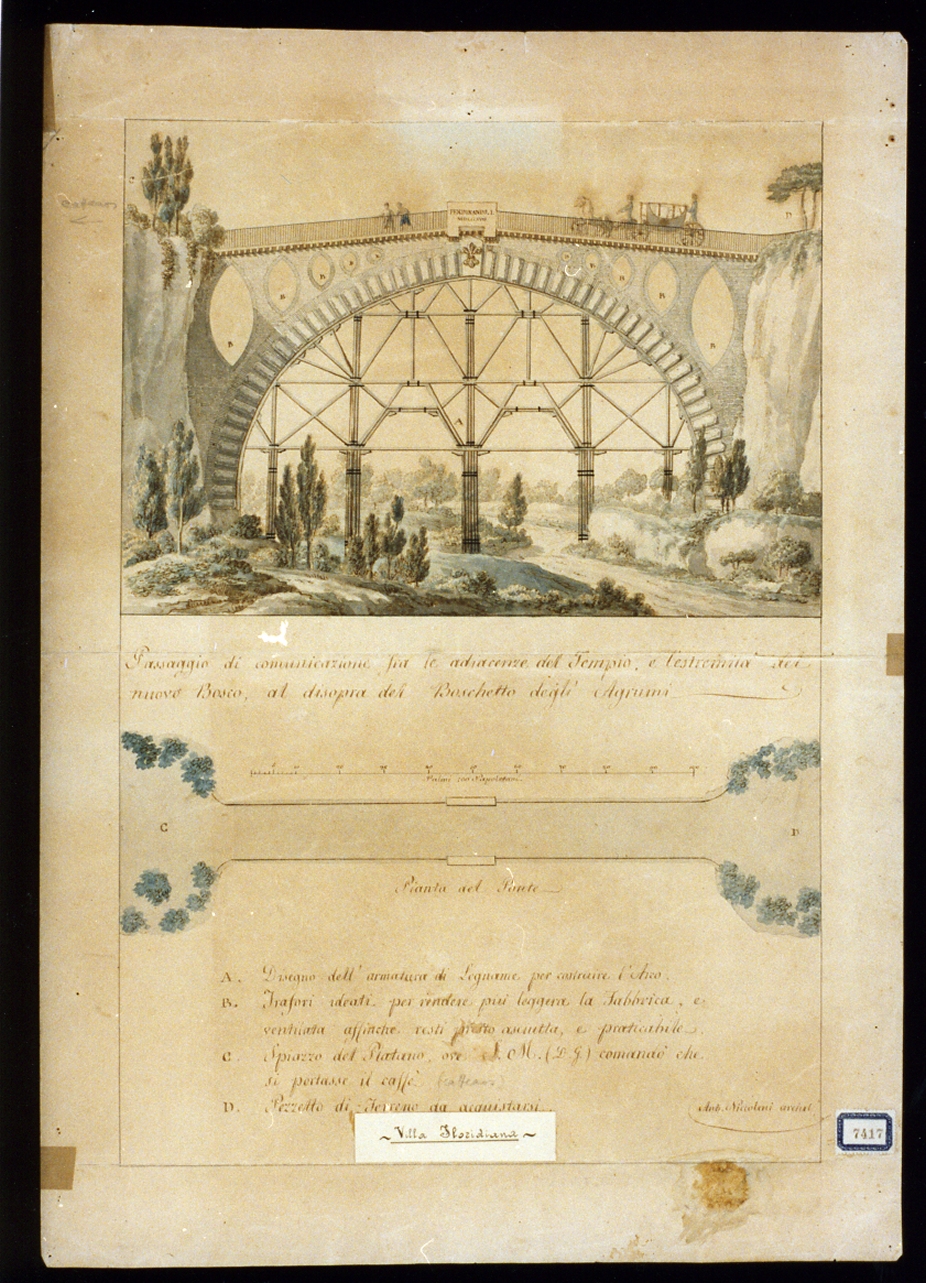 caffeaus
FERDINANDO I
D
B
B
B
B
B
B
B
B
A
Passaggio di comunicazione fra le adiacenze del Tempio, e l'estremità del
nuovo Bosco, al disopra del Boschetto degli Agrumi
Palmi 100 Napoletani
C
D
Pianta del Ponte
A. Disegno dell'armatura di Legname per costruire l'Arco.
B. Trafori ideati per rendere più leggera la Fabbrica, e
ventilata affinchè resti presto asciutta, e praticabile
C. Spiazzo del Platano, ove S. M. (D. G.) comandò che
si portasse il caffè (caffeaus)
D. Pezzetto di Terreno da acquistarsi
Ant. Niccolini archit.
~ Villa Floridiana ~
7417